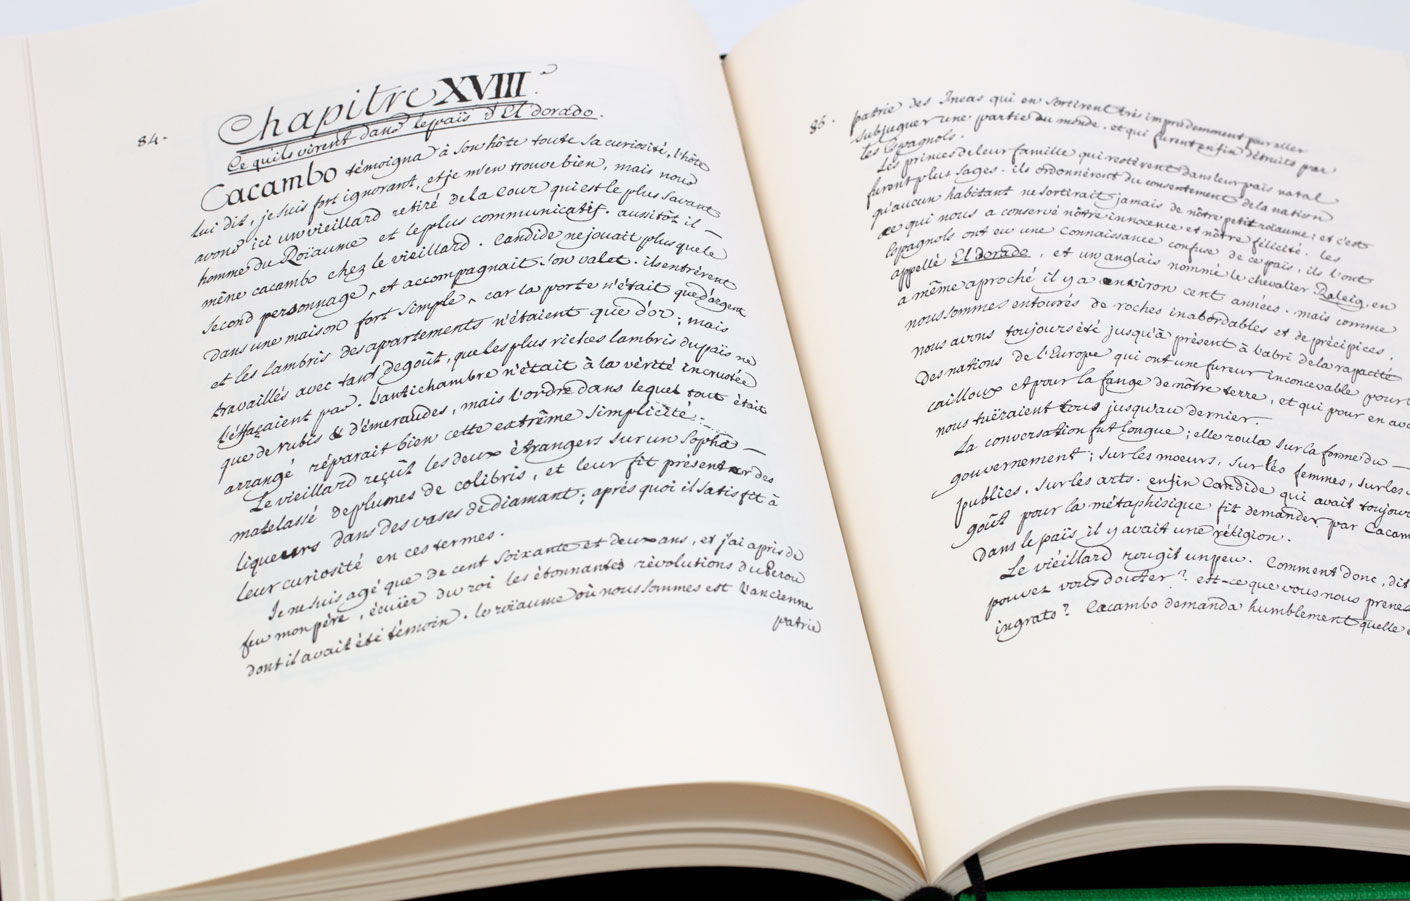 84.
Chapitre XVIII.
Ce qu'ils virent dans le païs d'El dorado.
Cacambo témoigna à son hôte toute sa curiosité, l'hôte
lui dit, je suis fort ignorant, et je m'en trouve bien, mais nous
avons ici un vieillard retiré de la Cour qui est le plus savant
homme du Roïaume et le plus communicatif. aussitôt il —
mêne cacambo chez le vieillard. Candide ne jouait plus que le
second personnage, et accompagnait son valet. ils entrèrent
dans une maison fort simple, car la porte n'était que d'argent
et les lambris des apartements n'étaient que d'or; mais
travaillés avec tant de goût, que les plus riches lambris du païs ne
l'éffaçaient pas. l'antichambre n'était à la vérité incrustée
que de rubis & d'émeraudes, mais l'ordre dans lequel tout était
arrangé réparait bien cette extrême simplicité. —
Le vieillard reçût les deux étrangers sur un Sopha —
matelassé de plumes de colibris, et leur fit présenter des
liqueurs dans des vases de diamant; aprés quoi il satisfit à
leur curiosité en ces termes.
Je ne suis agé que de cent soixante et deux ans, et j'ai apris de
feu mon pére, écuïer du roi les étonnantes révolutions du Perou
dont il avait été témoin. le roïaume où nous sommes est l'ancienne
patrie
85.
patrie des Incas qui en sortirent très imprudemment pour aller
subjuguer une partie du monde. et qui furent enfin détruits par
les Espagnols.
Les princes de leur famille qui restèrent dans leur païs natal
furent plus sages. ils ordonnèrent du consentement de la nation
qu'aucun habitant ne sortirait jamais de nôtre petit roïaume; et c'est
ce qui nous a conservé nôtre innocence et nôtre félicité. les
Espagnols ont eu une connaissance confuse de ce païs, ils l'ont
appellé El dorado, et un anglais nommé le chevalier Raleig. en
a même aproché il y a environ cent années. mais comme
nous sommes entourés de roches inabordables et de précipices,
nous avons toujours été jusqu'à présent à l'abri de la rapacité
des nations de l'Europe qui ont une fureur inconcevable pour
cailloux et pour la fange de nôtre terre, et qui pour en
nous tüeraient tous jusqu'au dernier.
La conversation fut longue; elle roula sur la forme du —
gouvernement; sur les moeurs, sur les femmes, sur les
publics, sur les arts. enfin Candide qui avait toujours
goût pour la métaphisique fit demander par
dans le païs il y avait une réligion.
Le vieillard rougit un peu. Comment donc, dit
pouvez vous douter? est-ce que vous nous
ingrats? Cacambo demanda humblement quelle